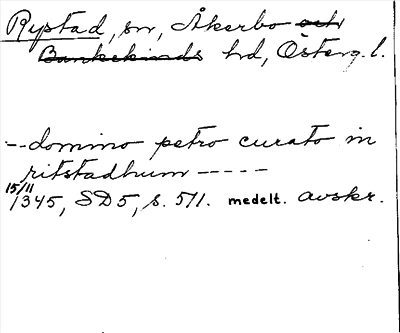 Rystad, sn, Åkerbo och
Bankekinds hd, Österg. l.
--domino petro curato in
ritstadhum -----
15/11
1345, SD5, s. 571. medelt. avskr.